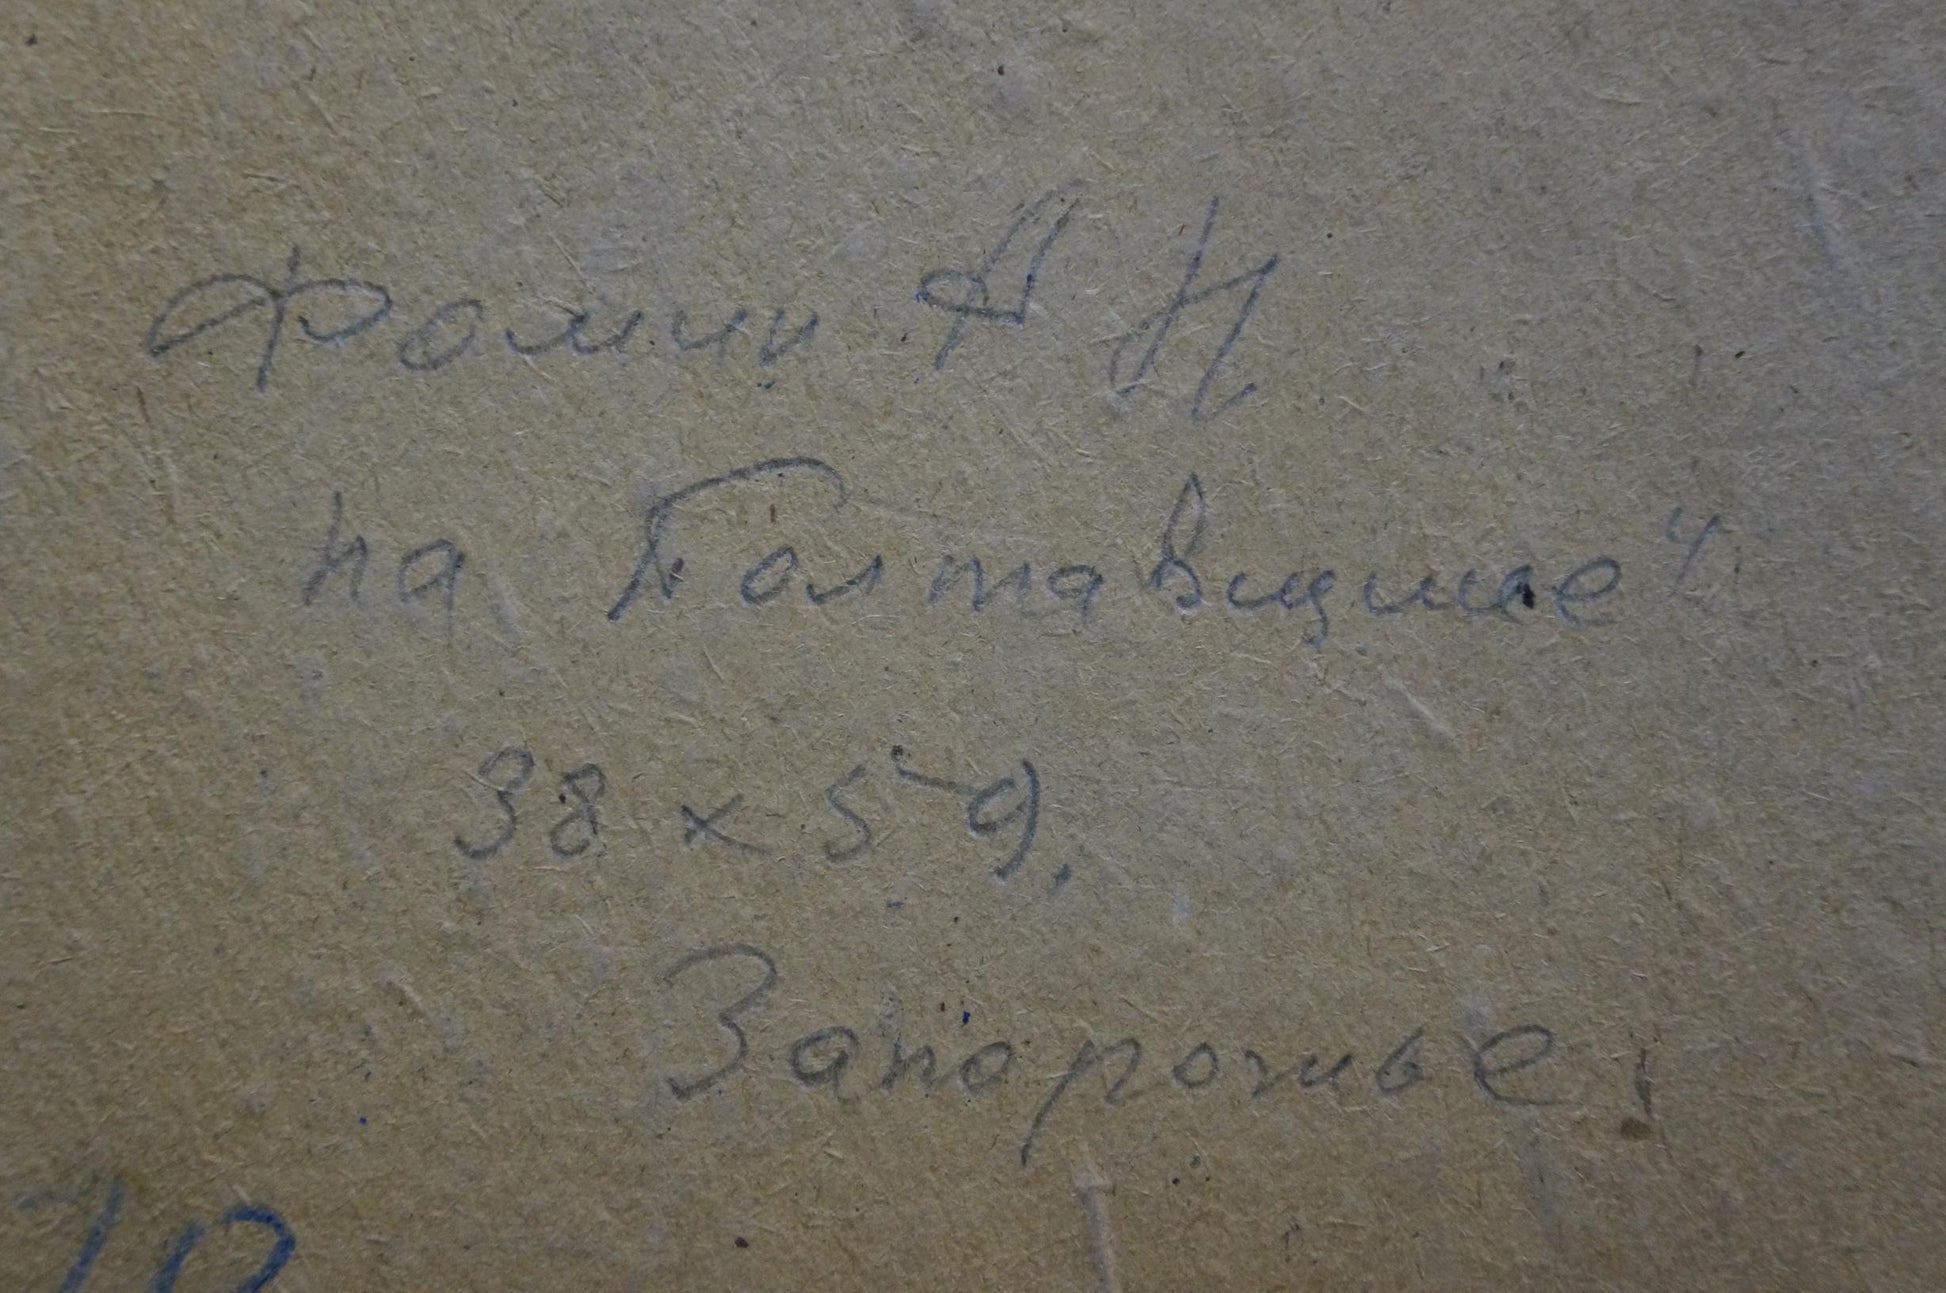 Фомин А Н.
на Полтавщине"
38 x 59.
Запорожье.
70